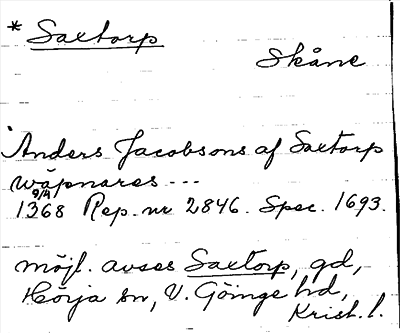 * Saxtorp
Skåne
Anders Jacobsons af Saxtorp
wäpnares ---
9/4
1368 Rep. nr 2846. Spec. 1693.
möjl. avses Saxtorp, gd,
Hörja sn, V. Göinge hd,
Krist. l.